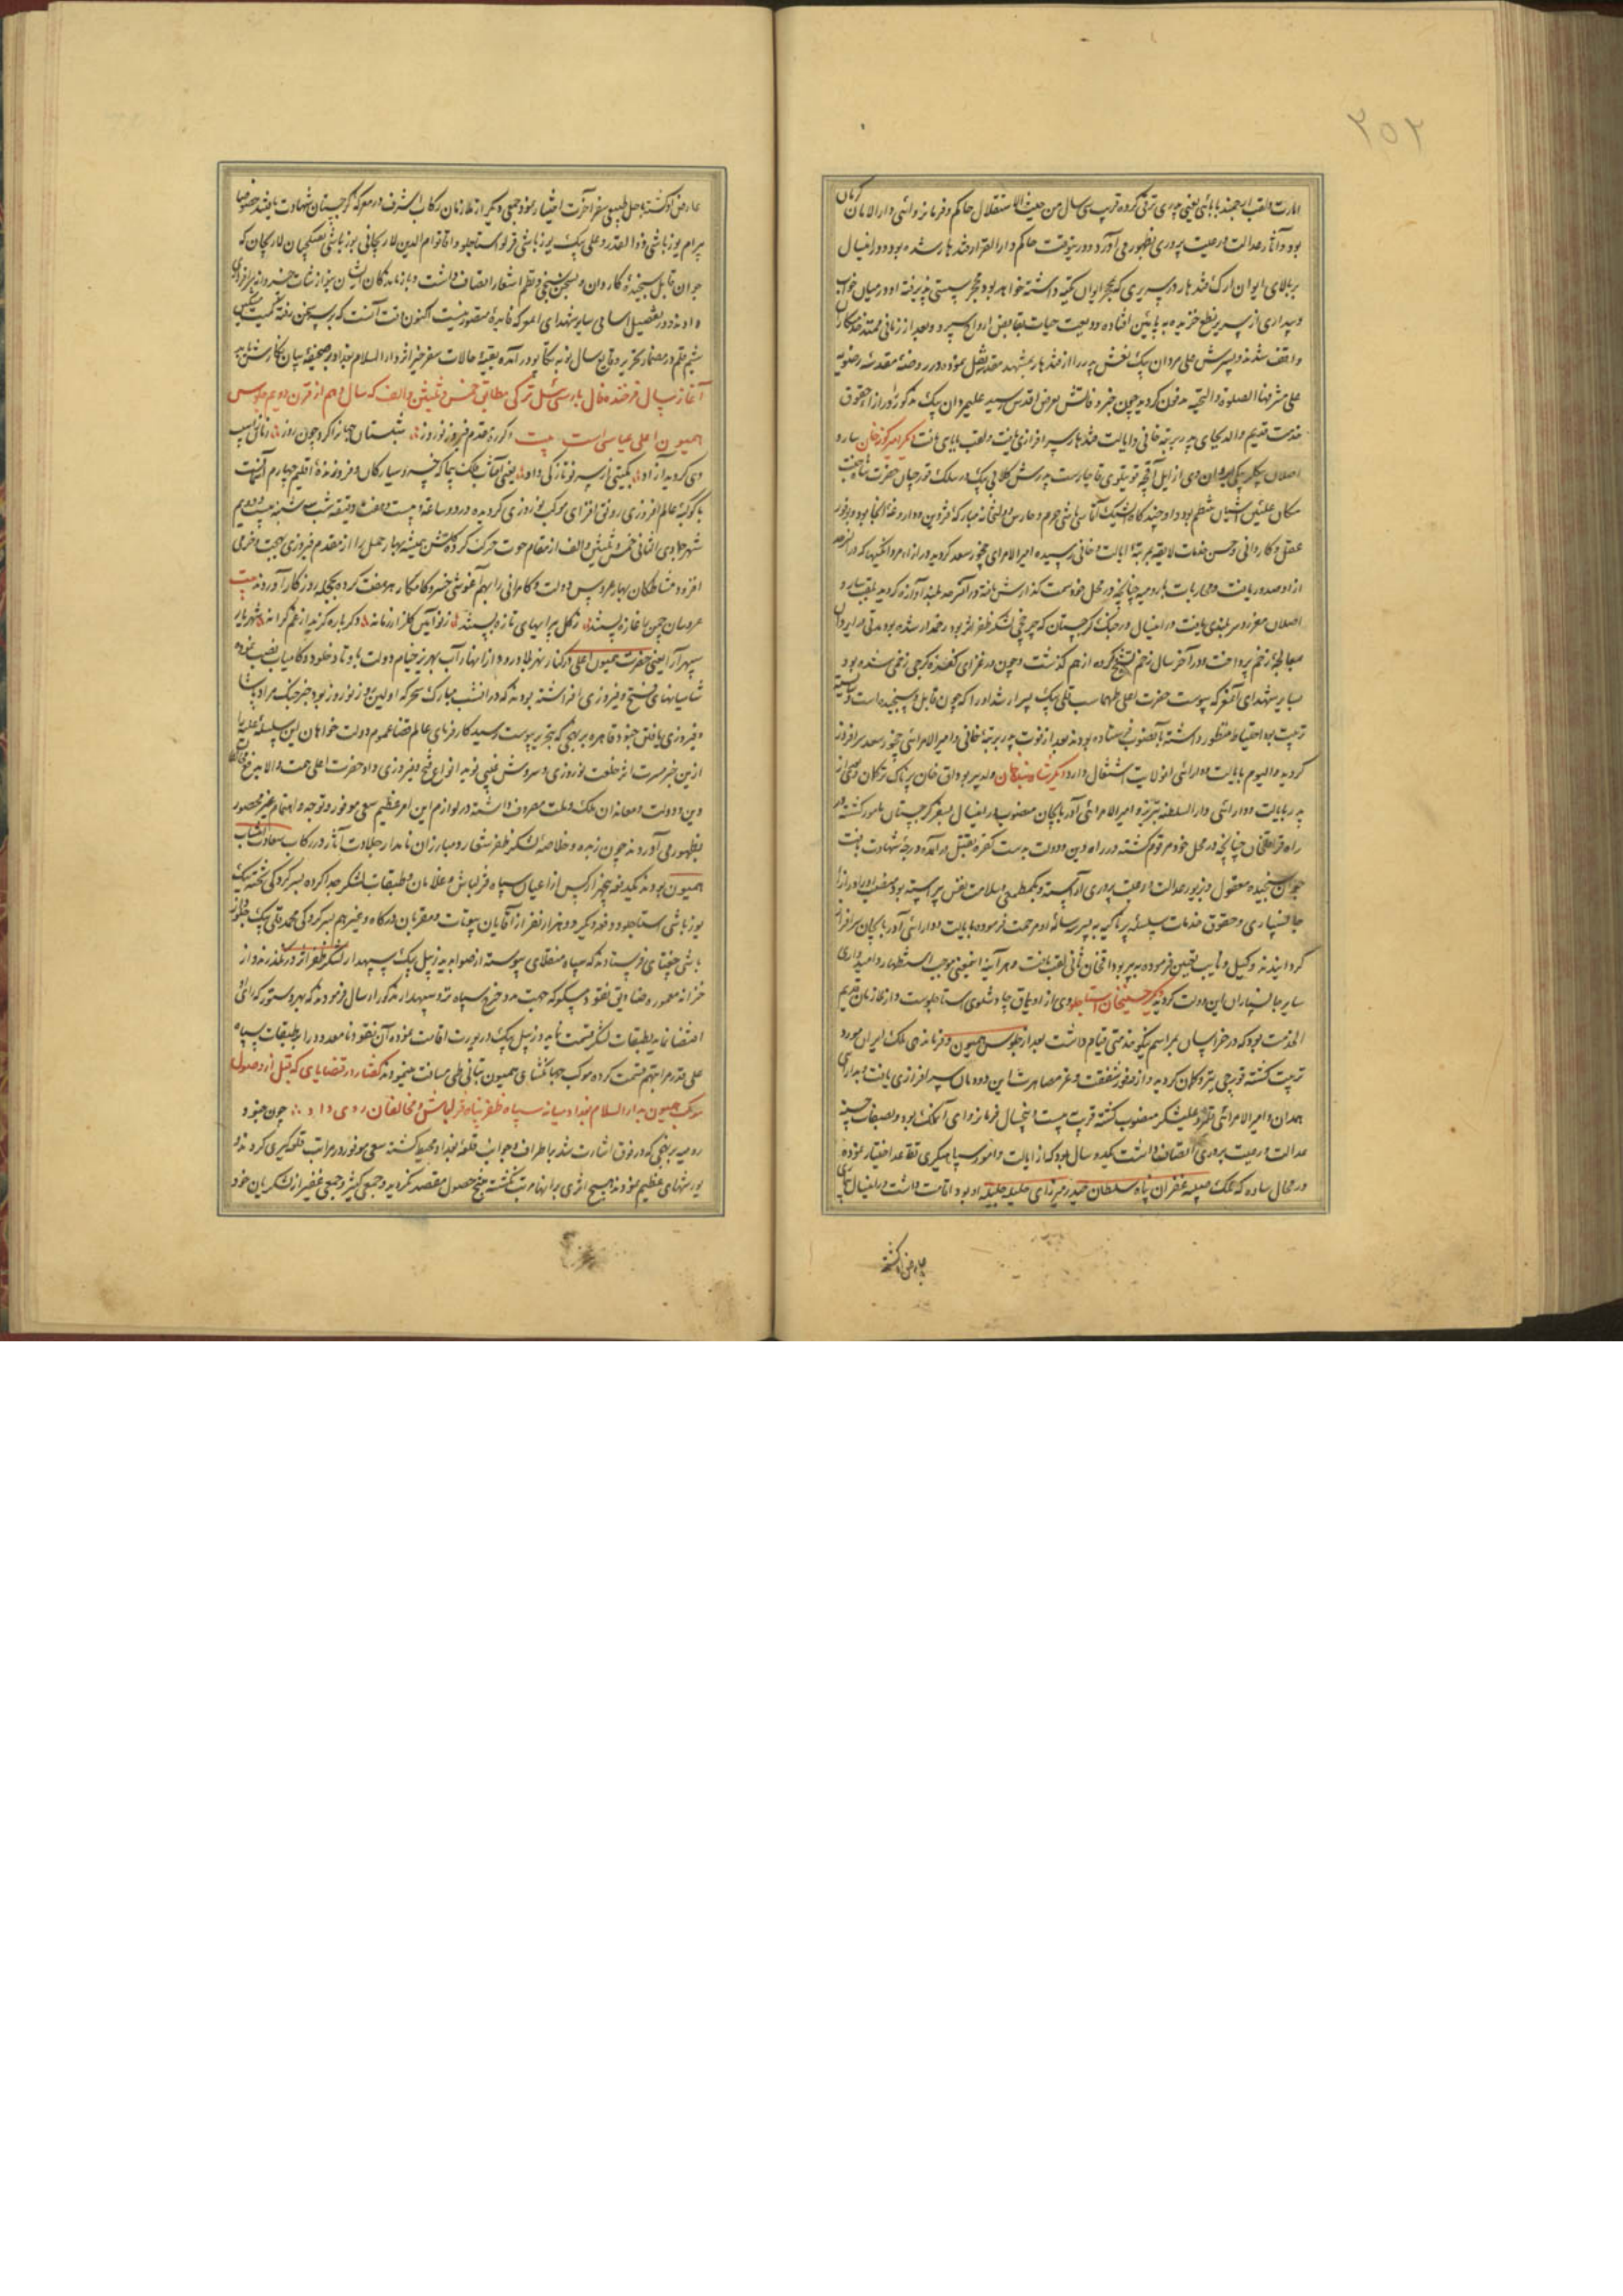 ۲۵۲
امارت و لقب ارجمند بابائی یعنی پدری ترقی کرده قریب سی سال من حیث الاستقلال حاکم و فرمانروای دارالامان کرمان
بود و آثار عدالت و رعیت پروری بظهور می‌آورد و درینوقت حاکم دارالقرار قندهار شده بود در اینسال
بر بالای ایوان ارک قندهار در سریری که بمحجر ایوان تکیه داشته خوابیده بود محجر سستی پذیرفته او در میان خواب
و بیداری از سریر بنطع خزیده به پائین افتاده ودیعت حیات بقابض ارواح سپرد و بعد از زمانی ممتد خدمتکاران
واقف شدند و پسرش علی مردان بیک نعش پدر را از قندهار بمشهد مقدس نقل نموده در روضهٔ مقدسه رضویه
علی مشرفها الصلوة والتحیه مدفون گردید چون خبر فوتش بعرض اقدس رسید علیمردان بیک مذکور را از حقوق
خدمت قدیم والد بجای پدر برتبه خانی و ایالت قندهار سرافرازی یافت و لقب بابای ثانی یافت دیگر امیرگونه خان سارو
اصلان بیگلربیگی ایروان وی از ایل آقچه قوینلوی قاجارست پدرش گلابی بیک در سلک قورچیان حضرت شاه جنت
مکان علیین آشیان منتظم بود و او چندگاه ایشیک آقاسی باشی حرم و حارس دولتخانه مبارکه قزوین و داروغه آنجا بود و بوفور
عقل و کاردانی و حسن خدمات لایقه بمرتبهٔ ایالت و خانی رسیده امیرالامرای چخور سعد گردید و از او مردانگیها که در آن سرحد
از او صدور یافت و محاربات با رومیه چنانچه در محل خود سمت گذارش یافته در آن سرحد بلند آوازه گردید بلقب سارو
اصلان معزز و سربلندی یافت در اینسال در جنگ گرجستان که چرخچی لشکر ظفر اثر بود زخمدار شده بود مدتی در ایروان
معالجهٔ زخم پرداخت و در آخر سال زخم تشنج کرده از هم گذشت و چون در غزای کفرهٔ گرجی زخمی شده بود
بسایر شهدای آن معرکه پیوست حضرت اعلی طهماسب قلی بیک پسر ارشد او را که جوان قابل و سنجیده است و شایسته
تربیت بود احتیاط منظور داشته بآنصوب فرستاده بودند بعد از فوت پدر برتبهٔ خانی و امیرالامرائی چخور سعد سرافراز
گردید و الیوم بایالت و دارائی آن ولایت اشتغال دارد دیگر شاه بنده خان ولد پیر بوداق خان پرناک ترکمان وی بعد از
پدر بایالت و دارائی دارالسلطنه تبریز و امیرالامرائی آذربایجان منصوب در اینسال بسفر گرجستان مامور گشته در
راه قراقلخان چنانچه در محل خود مرقوم گشته در راه دین و دولت بدست کفره بقتل درآمده درجهٔ شهادت یافت
جوان سنجیده معقول و بزیور عدالت و رعیت پروری آراسته و بکم طمعی و سلامت نفس پیراسته بود منصب او را از
جانسپاری و حقوق خدمات سلسله پرناکیه به پسر سه ساله او مرحمت فرموده بایالت و دارائی آذربایجان سرافراز
گردانیدند و وکیل و نایب تعیین فرموده به پیر بوداق خان ثانی لقب یافت و هرآینه اینمعنی موجب استظهار و امیدواری
سایر جانسپاران این دولت گردید دیگر حسینخان استاجلو وی از اویماق چاوشلوی استاجلوست و از ملازمان قدیم
الخدمت بود که در خراسان بمراسم نیکو خدمتی قیام داشت بعد از جلوس همیون و فرماندهی ملک ایران مورد
تربیت گشته قورچی تیر و کمان گردید و از وفور شفقت و عز مصاهرت این دودمان سرافرازی یافت و بدارائی
همدان و امیرالامرائی قلمرو علیشکر منصوب گشته قریب بیست و پنجسال فرمانروای آن ملک بود و بصفات حسنه
عدالت و رعیت پروری اتصاف داشت یکدو سال بود که از ایالت و امور سپاهیگری تقاعد اختیار نموده
در محال ساوه که ملک صبیه غفران پناه سلطان حیدر میرزای حلیله جلیله او بود اقامت داشت در اینسال
عارض او گشته
عارض او گشته باجل طبیعی سفر آخرت اختیار نمود جمعی دیگر از ملازمان رکاب اشرف در معرکه گرجستان شهادت یافتند خصوصا
بیرام یوزباشی ذوالقدر و علی بیک یوزباشی قرلو استاجلو و آقا قوام الدین لاریجانی یوزباشی تفنگچیان لاریجان که
جوان قابل سنجیدهٔ کاردان و بسخن سنجی و نظم اشعار اتصاف داشت و بازماندگان ایشان بنوازشات خسروانه سرافرازی
دادند و در تفصیل اسامی سایر شهدای آنمعرکه فایدهٔ متصور نیست اکنون وقت آنست که بر سر سخن رفته کمیت مشکین
شیم قلم در مضمار تحریر وقایع سال نو به تکاپو درآمده بقیهٔ حالات سفر خیر اثر دارالسلام بغداد بر صحیفهٔ بیان نگارش یابد
آغاز سال فرخنده فال بارس ئیل ترکی مطابق خمس و ثلثین و الف که سال دهم از قرن دویم جلوس
همیون اعلی عباسی است بیت دگرره مقدم فیروز نوروز شبستان جهانرا کرد چون روز زمانی آسیب
دی گردید آزاد بگیتی از سر نو تازگی داد یعنی آفتاب فلک پیما که خسرو سیارگان و فروزندهٔ اقلیم چهارم آسمانست
با کوکبهٔ عالم افروزی رونق افزای موکب نوروزی گردیده در دو ساعت و بیست و هفت دقیقه شب سه شنبه بیست و دویم
شهر جمادی الثانی خمس و ثلثین و الف از مقام حوت حرکت کرده گلشن همیشه بهار حمل را از مقدم فیروزی بهجت و خرمی
افزود مشاطگان بهار عروس دولت و کامرانی را بهم آغوشی خسرو کامکار هر هفت کرده بحجله روزگار آوردند بیت
عروسان چمن با غازه پستند ز گل پیرایهای تازه بستند ز نو آیین گلزار زمانه دگرباره گزید از غم کرانه شهریار
سپهر آرا یعنی حضرت همیون اعلی در کنار نهر طاووق و از انهار آب بهریز خیام دولت باوتاد خلود و کامیاب نصب نموده
سایبانهای فتح و فیروزی افراشته بودند که در آنشب مبارک سحرگه اولین روز نوروز بود خبر جنگ مراد پاشا
و فیروزی یافتن جنود قاهره بر نهجی که بتحریر پیوست رسید کارفرمای عالم قضا عموم دولت خواهان این سلسلهٔ علیه را
ازین خبر مسرت اثر خلعت نوروزی و سروش غیبی نوید انواع فتح و فیروزی داد حضرت اعلی همت والا بدفع مخالفان
دین و دولت و معاندان ملک و ملت مصروف داشته در لوازم این امر عظیم سعی موفور و توجه و اهتمام غیر محصور
بظهور می‌آوردند چون زبده و خلاصهٔ لشکر ظفر شعار و مبارزان نامدار جلادت آثار در رکاب سعادت انتساب
همیون بودند یکدفعه پنجهزار کس از اعیان سپاه قزلباش و غلامان و طبقات لشکر جدا کرده بسرکردگی تخته بیک
یوزباشی استاجلو و دفعه دیگر دو هزار نفر از آقایان بیوتات و مقربان درگاه و غیرهم بسرکردگی محمد قلی بیک
باشی چغتای فرستادند که سپاه منقلای پیوسته از صوابدید زینل بیک سپهدار لشکر ظفر اثر درنگذرند و از
خزانه معموره مبلغی نقود و مسکوکه جهت مدد خرج سپاه نزد سپهدار مذکور ارسال فرمودند که بهر دستور که رای
اقتضا نماید بطبقات لشکر قسمت نماید و زینل بیک در یورت اقامت نموده آن نقود نامعدود را بر طبقات سپاه
علی قدر مراتبهم قسمت کرده موکب جهانگشای همیون بتأنی طی مسافت مینمودند گفتار در قضایای که قبل از وصول
موکب همیون بدارالسلام بغداد میانه سپاه ظفرپناه قزلباش و مخالفان روی داد چون جنود
رومیه بر نهجی که در فوق اشارت شد باطراف و جوانب قلعهٔ بغداد محیط گشته سعی موفور در مراتب قلعه گیری کردند و
یورشهای عظیم نمودند هیچ اثری بر آنها مرتب نگشته منتج حصول مقصد نگردید و جمعی کثیر و جمعی غفیر از لشکریان خود